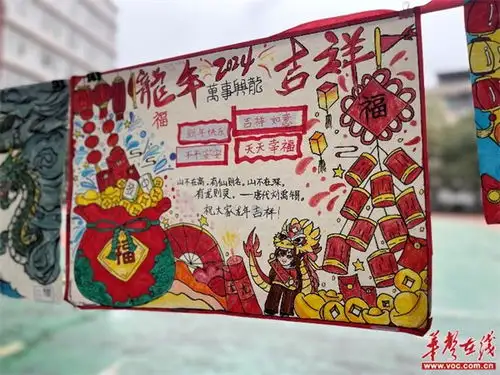 龍年 2024 吉祥
萬事興龍
福
新年快乐
吉祥如意
平平安安
天天幸福
福
山不在高，有仙则名，山不在深，
有龙则灵，——唐代刘禹锡。
祝大家龙年吉祥！
福
福
华声在线
www.voc.com.cn